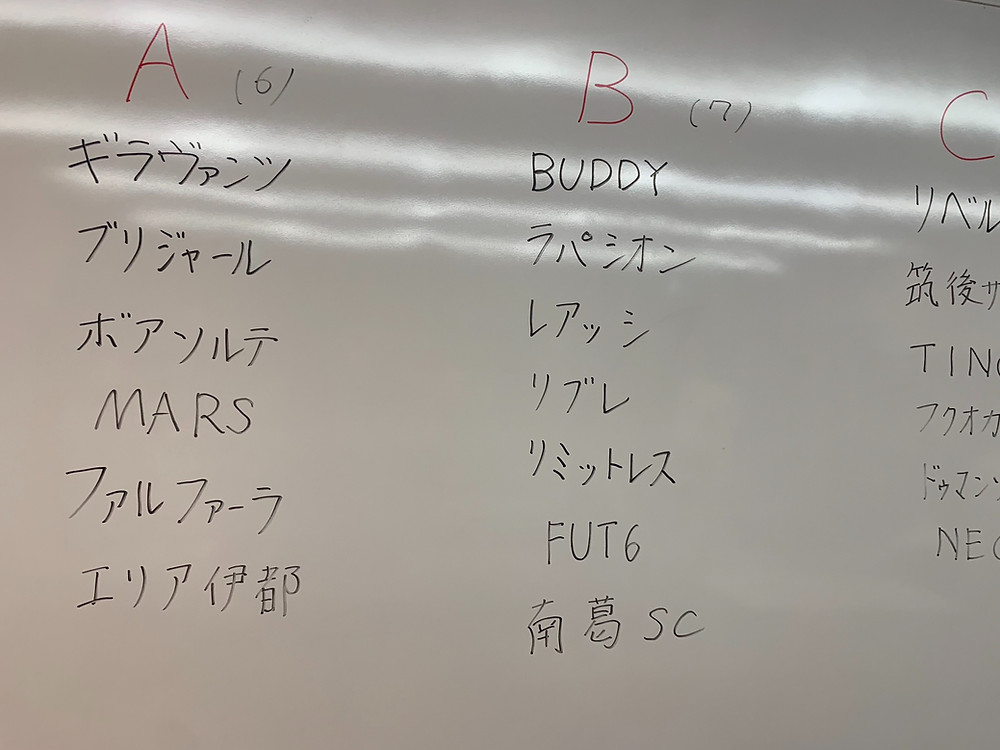 A (6)
ギラヴァンツ
ブリジャール
ボアソルテ
MARS
ファルファーラ
エリア伊都
B (7)
BUDDY
ラパシオン
レアッシ
リブレ
リミットレス
FUT6
南葛SC
C
リベル
筑後サ
TING
フクオカ
ドゥマンソ
NEO